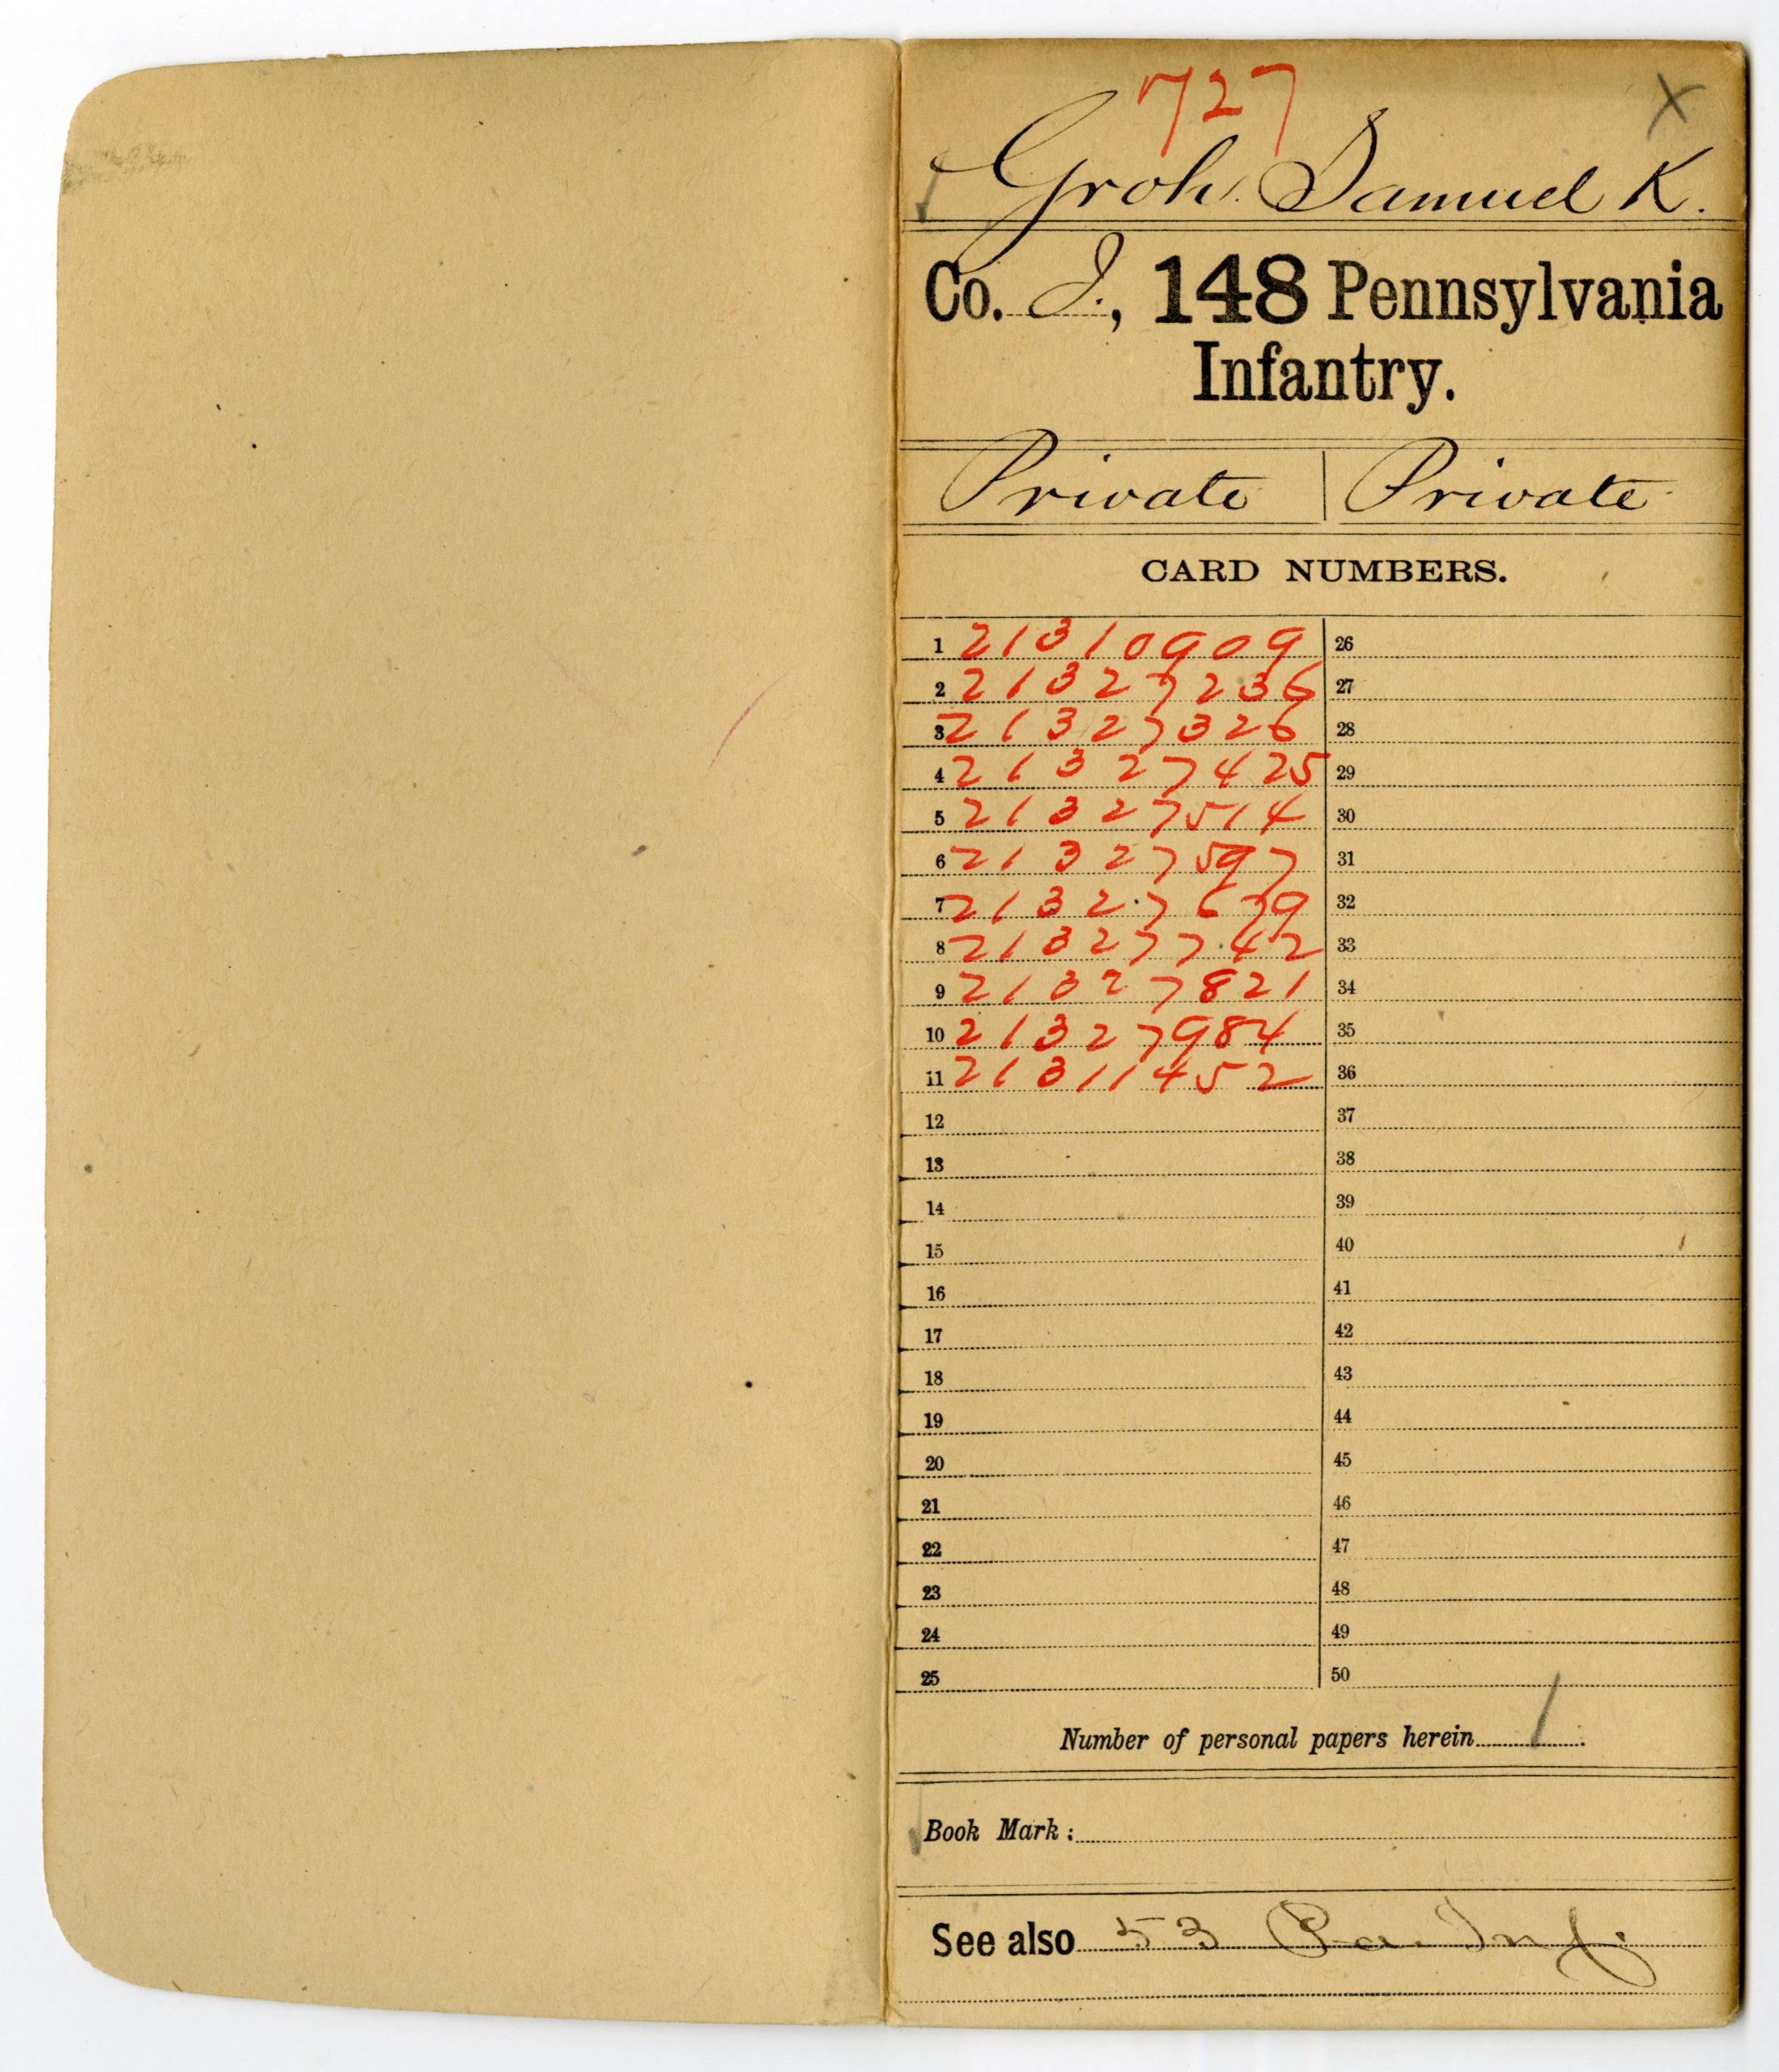 727
X
Groh Samuel K.
Co. I., 148 Pennsylvania
Infantry.
Private | Private
CARD NUMBERS.
1 21310909 26
2 21327236 27
3 21327326 28
4 21327425 29
5 21327514 30
6 21327597 31
7 21327679 32
8 21327742 33
9 21327821 34
10 21327984 35
11 21311452 36
12 37
13 38
14 39
15 40
16 41
17 42
18 43
19 44
20 45
21 46
22 47
23 48
24 49
25 50
Number of personal papers herein 1
Book Mark:
See also 53 Pa. Inf.